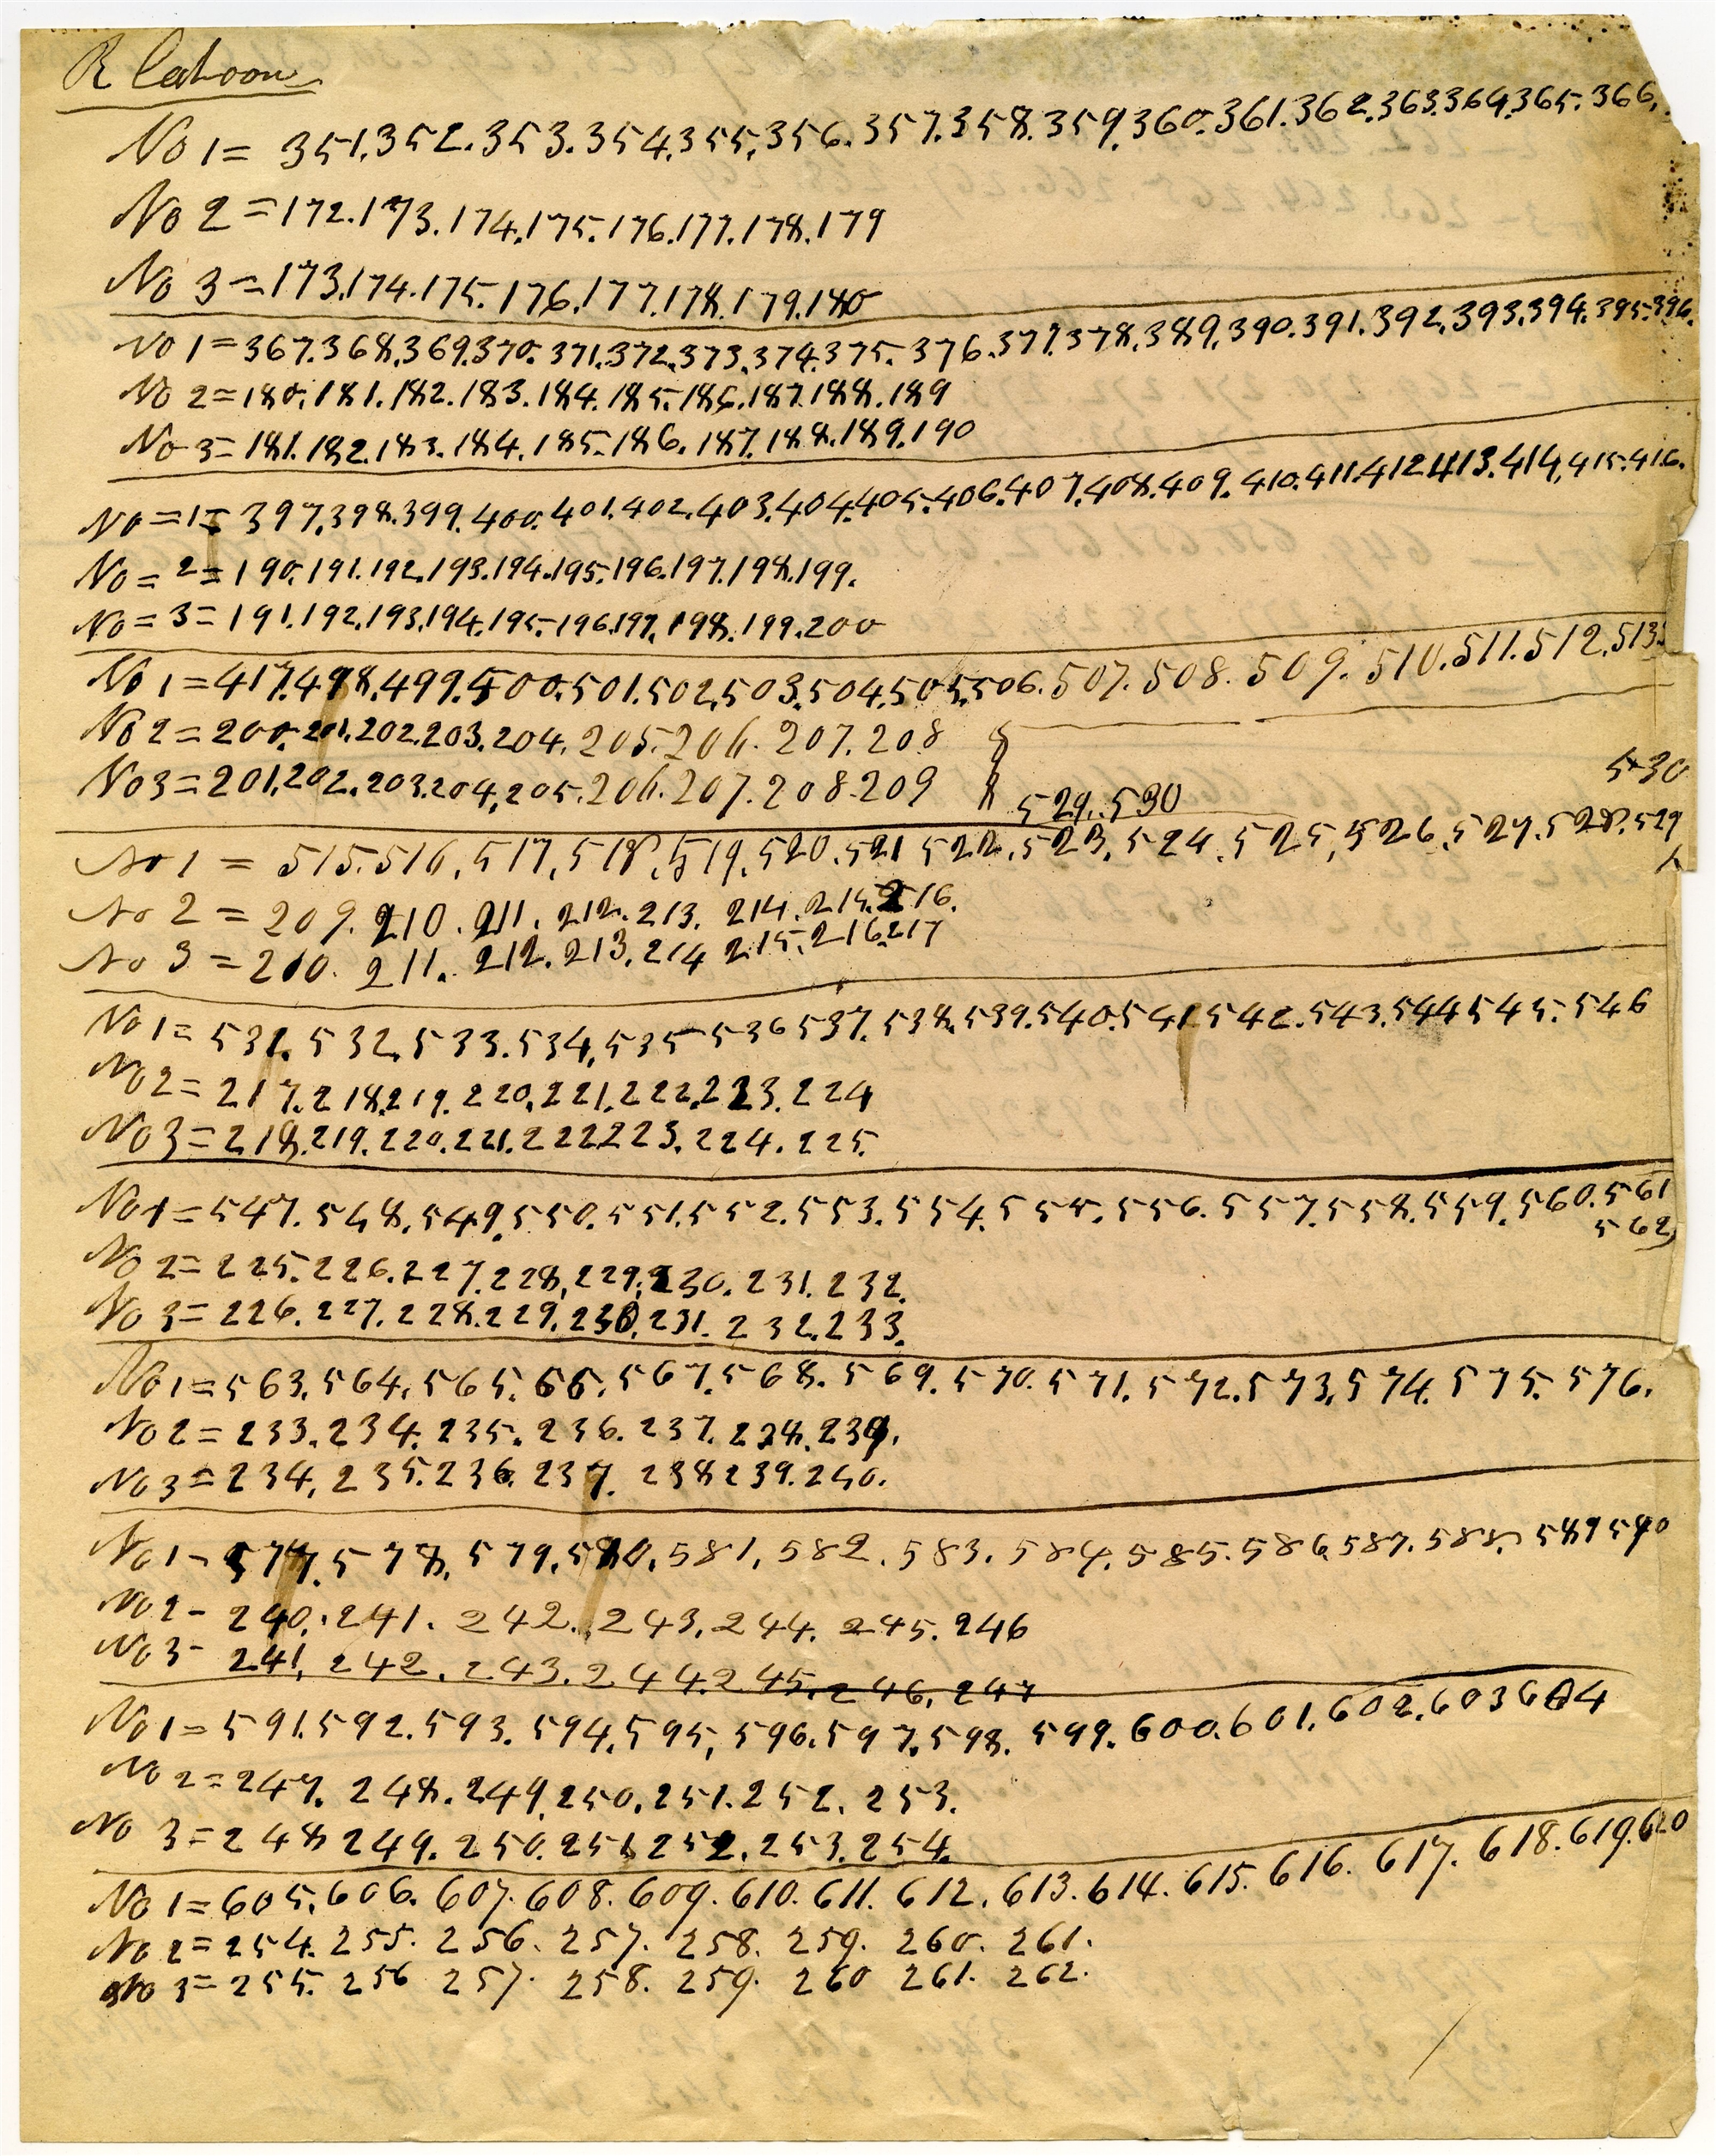 R Cahoon
No 1 = 351.352.353.354.355.356.357.358.359.360.361.362.363.364.365.366.
No 2 = 172.173.174.175.176.177.178.179
No 3 = 173.174.175.176.177.178.179.180
No 1 = 367.368.369.370.371.372.373.374.375.376.377.378.389.390.391.392.393.394.395.396.
No 2 = 180.181.182.183.184.185.186.187.188.189
No 3 = 181.182.183.184.185.186.187.188.189.190
No = 1 = 397.398.399.400.401.402.403.404.405.406.407.408.409.410.411.412.413.414.415.416.
No = 2 = 190.191.192.193.194.195.196.197.198.199.
No = 3 = 191.192.193.194.195.196.197.198.199.200
No 1 = 417.498.499.500.501.502.503.504.505.506.507.508.509.510.511.512.513.
No 2 = 200.201.202.203.204.205.206.207.208
No 3 = 201.202.203.204.205.206.207.208.209
529.530
530
No 1 = 515.516.517.518.519.520.521 522.523.524.525.526.527.528.529
No 2 = 209.210.211.212.213.214.215.216.
No 3 = 210.211.212.213.214 215.216.217
No 1 = 531.532.533.534.535 536 537.538.539.540.541 542.543.544 545.546
No 2 = 217.218.219.220.221.222.223.224
No 3 = 218.219.220.221.222.223.224.225.
No 1 = 547.548.549.550.551.552.553.554.555.556.557.558.559.560.561
562
No 2 = 225.226.227.228.229.230.231.232.
No 3 = 226.227.228.229.230.231.232.233.
No 1 = 563.564.565.66.567.568.569.570.571.572.573.574.575.576.
No 2 = 233.234.235.236.237.238.239.
No 3 = 234.235.236.237.238 239.240.
No 1 - 577.578.579.580.581.582.583.584.585.586.587.588.589 590
No 2 - 240.241.242.243.244.245.246
No 3 - 241.242.243.244.245.246.247
No 1 = 591.592.593.594.595.596.597.598.599.600.601.602.603 604
No 2 = 247.248.249.250.251.252.253.
No 3 = 248 249.250.251 252.253.254.
No 1 = 605.606.607.608.609.610.611.612.613.614.615.616.617.618.619.620
No 2 = 254.255.256.257.258.259.260.261.
No 3 = 255.256 257.258.259.260 261.262.